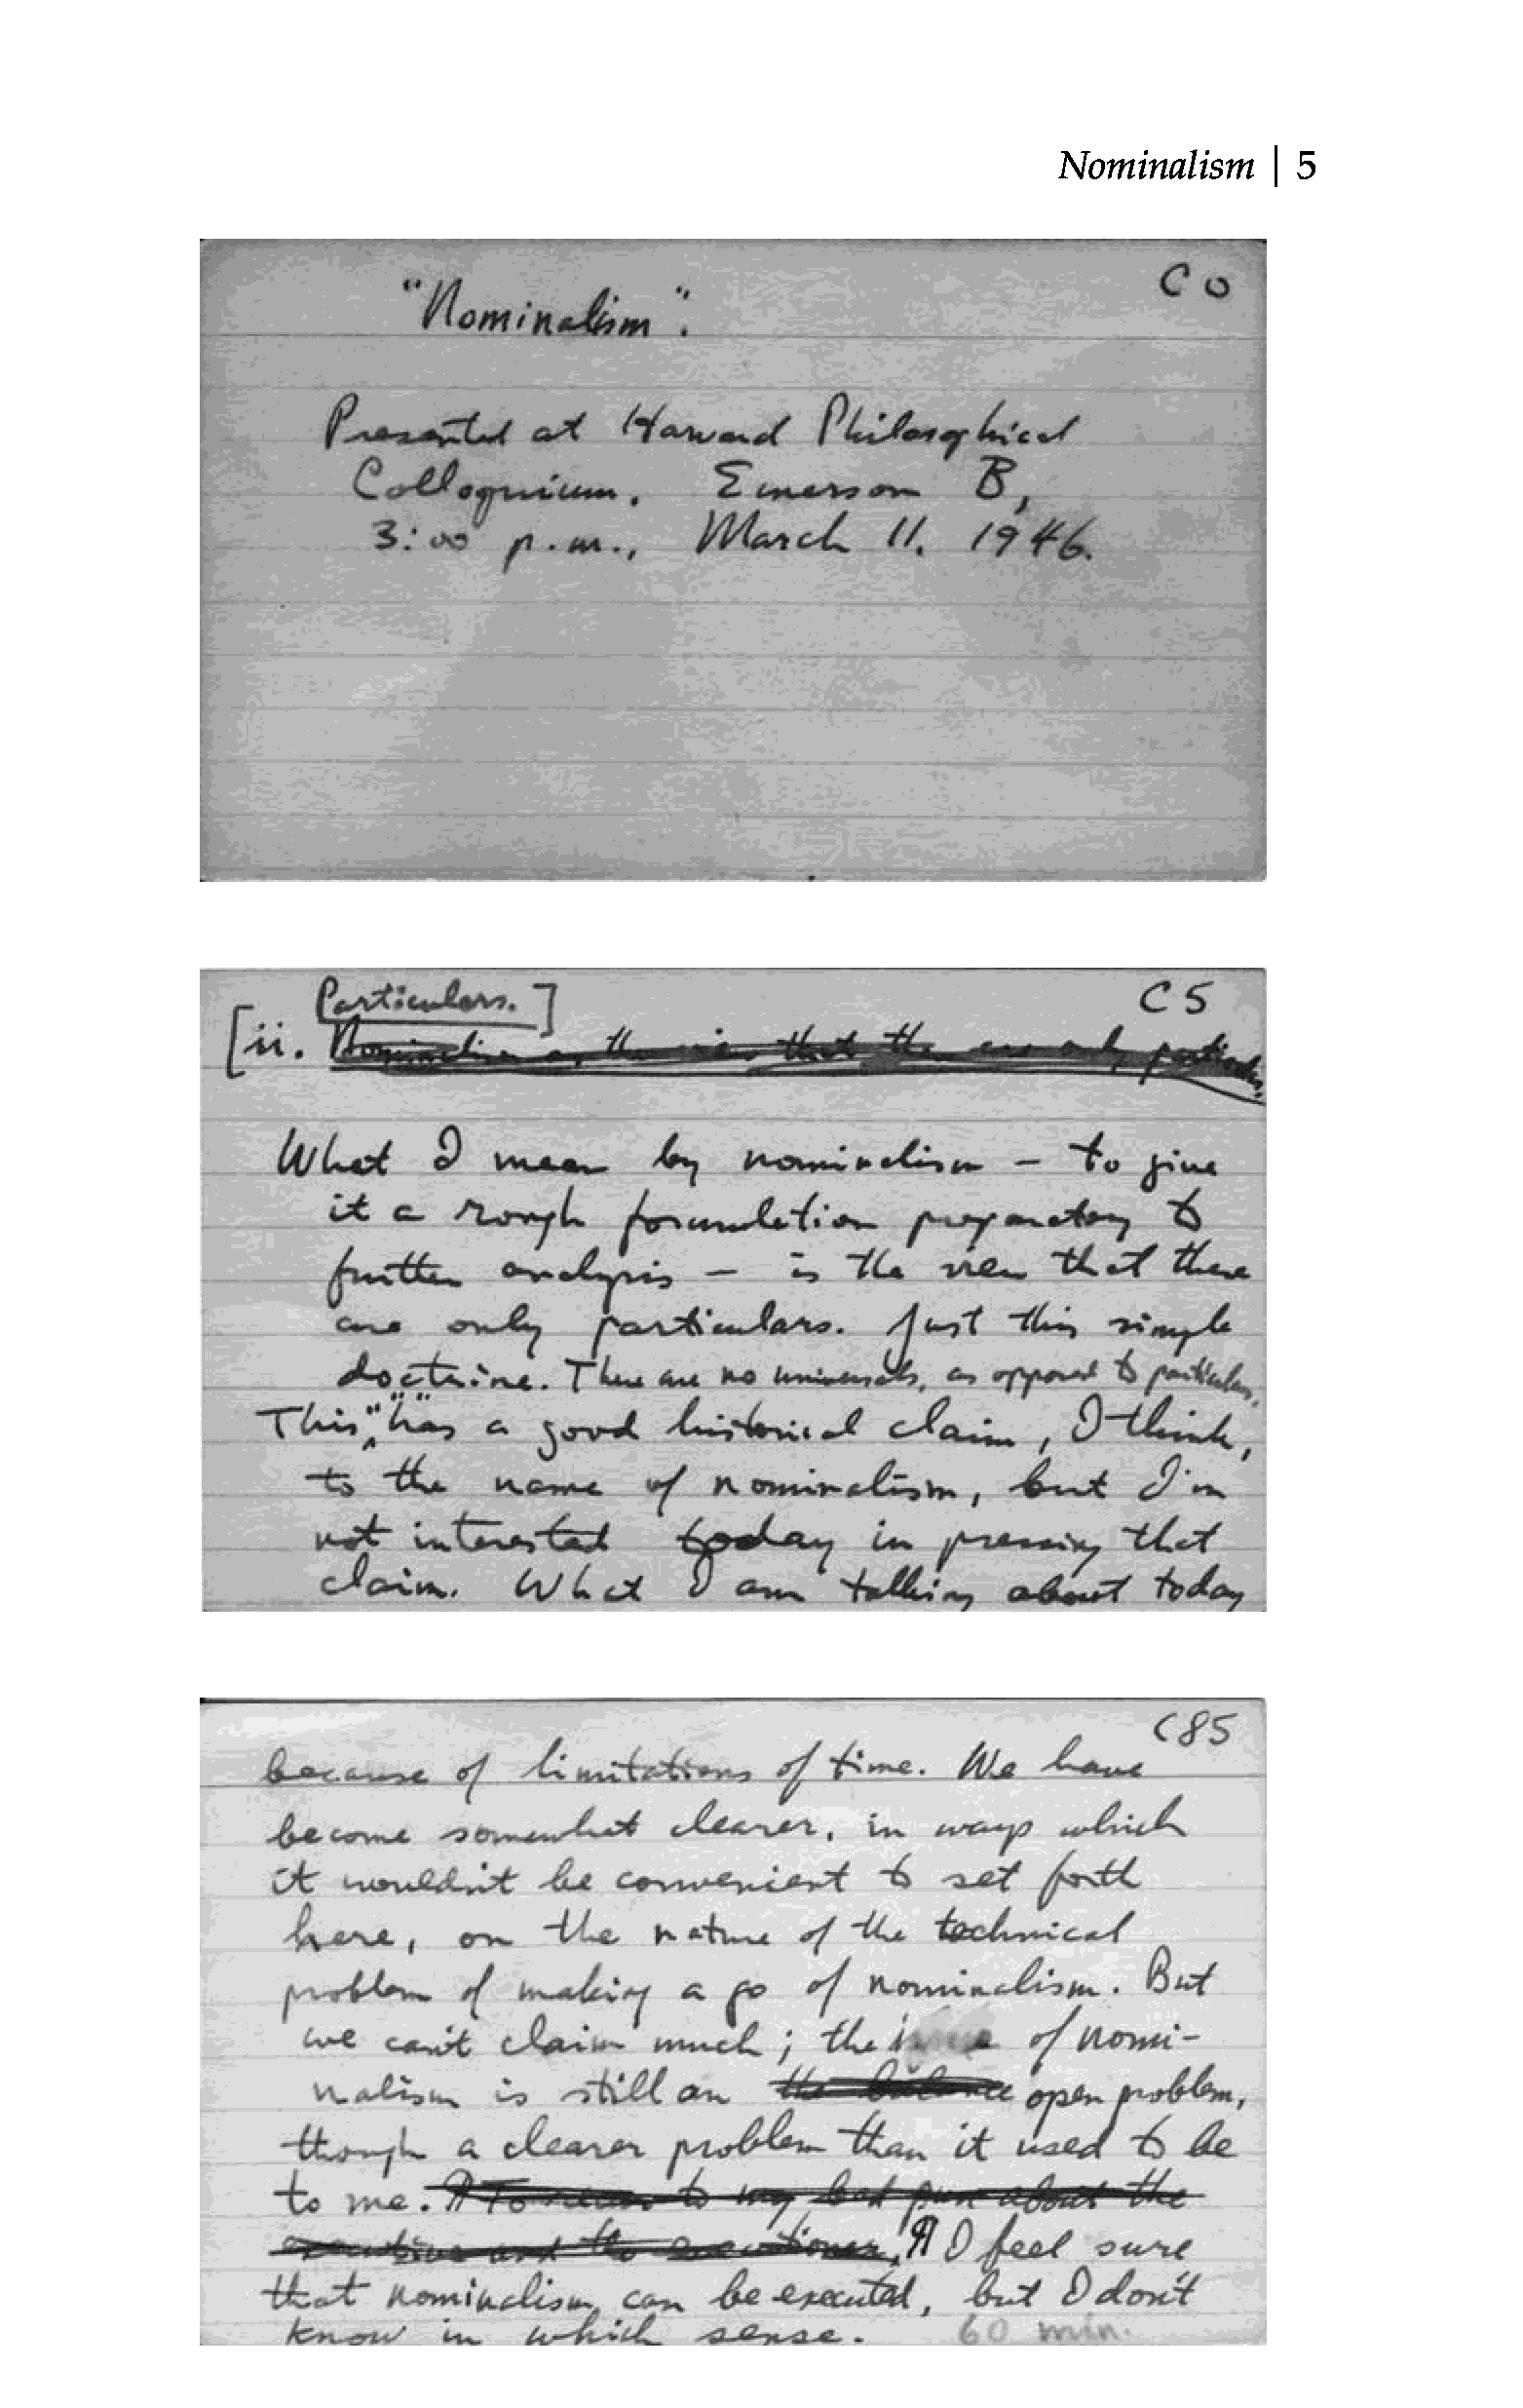 Nominalism | 5
"Nominalism".
C0
Presented at Harvard Philosophical
Colloquium, Emerson B,
3:00 p.m., March 11, 1946.
Particulars.]
C5
[ii. Nominalism as the view that there are only particulars.
What I mean by nominalism – to give
it a rough formulation preparatory to
further analysis – is the view that there
are only particulars. Just this simple
doctrine. There are no universals, as opposed to particulars.
This "has a good historical claim, I think,
to the name of nominalism, but I'm
not interested today in pressing that
claim. What I am talking about today
C85
because of limitations of time. We have
become somewhat clearer, in ways which
it wouldn't be convenient to set forth
here, on the nature of the technical
problem of making a go of nominalism. But
we can't claim much; the issue of nomi-
nalism is still an the balance open problem,
though a clearer problem than it used to be
to me. ¶ To recur to my bad pun about the
executive and the executioner, ¶ I feel sure
that nominalism can be executed, but I don't
know in which sense. 60 min.